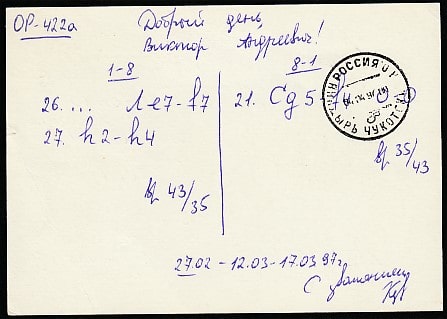 ОР-422а
Добрый день,
Виктор Андреевич!
1-8
26... Ле7-f7
27. h2-h4
Вр 43/35
8-1
21. Сд5
Вр 35/43
РОССИЯ
ЧУКОТ
27.02 - 12.03 - 17.03.97г.
С уважением